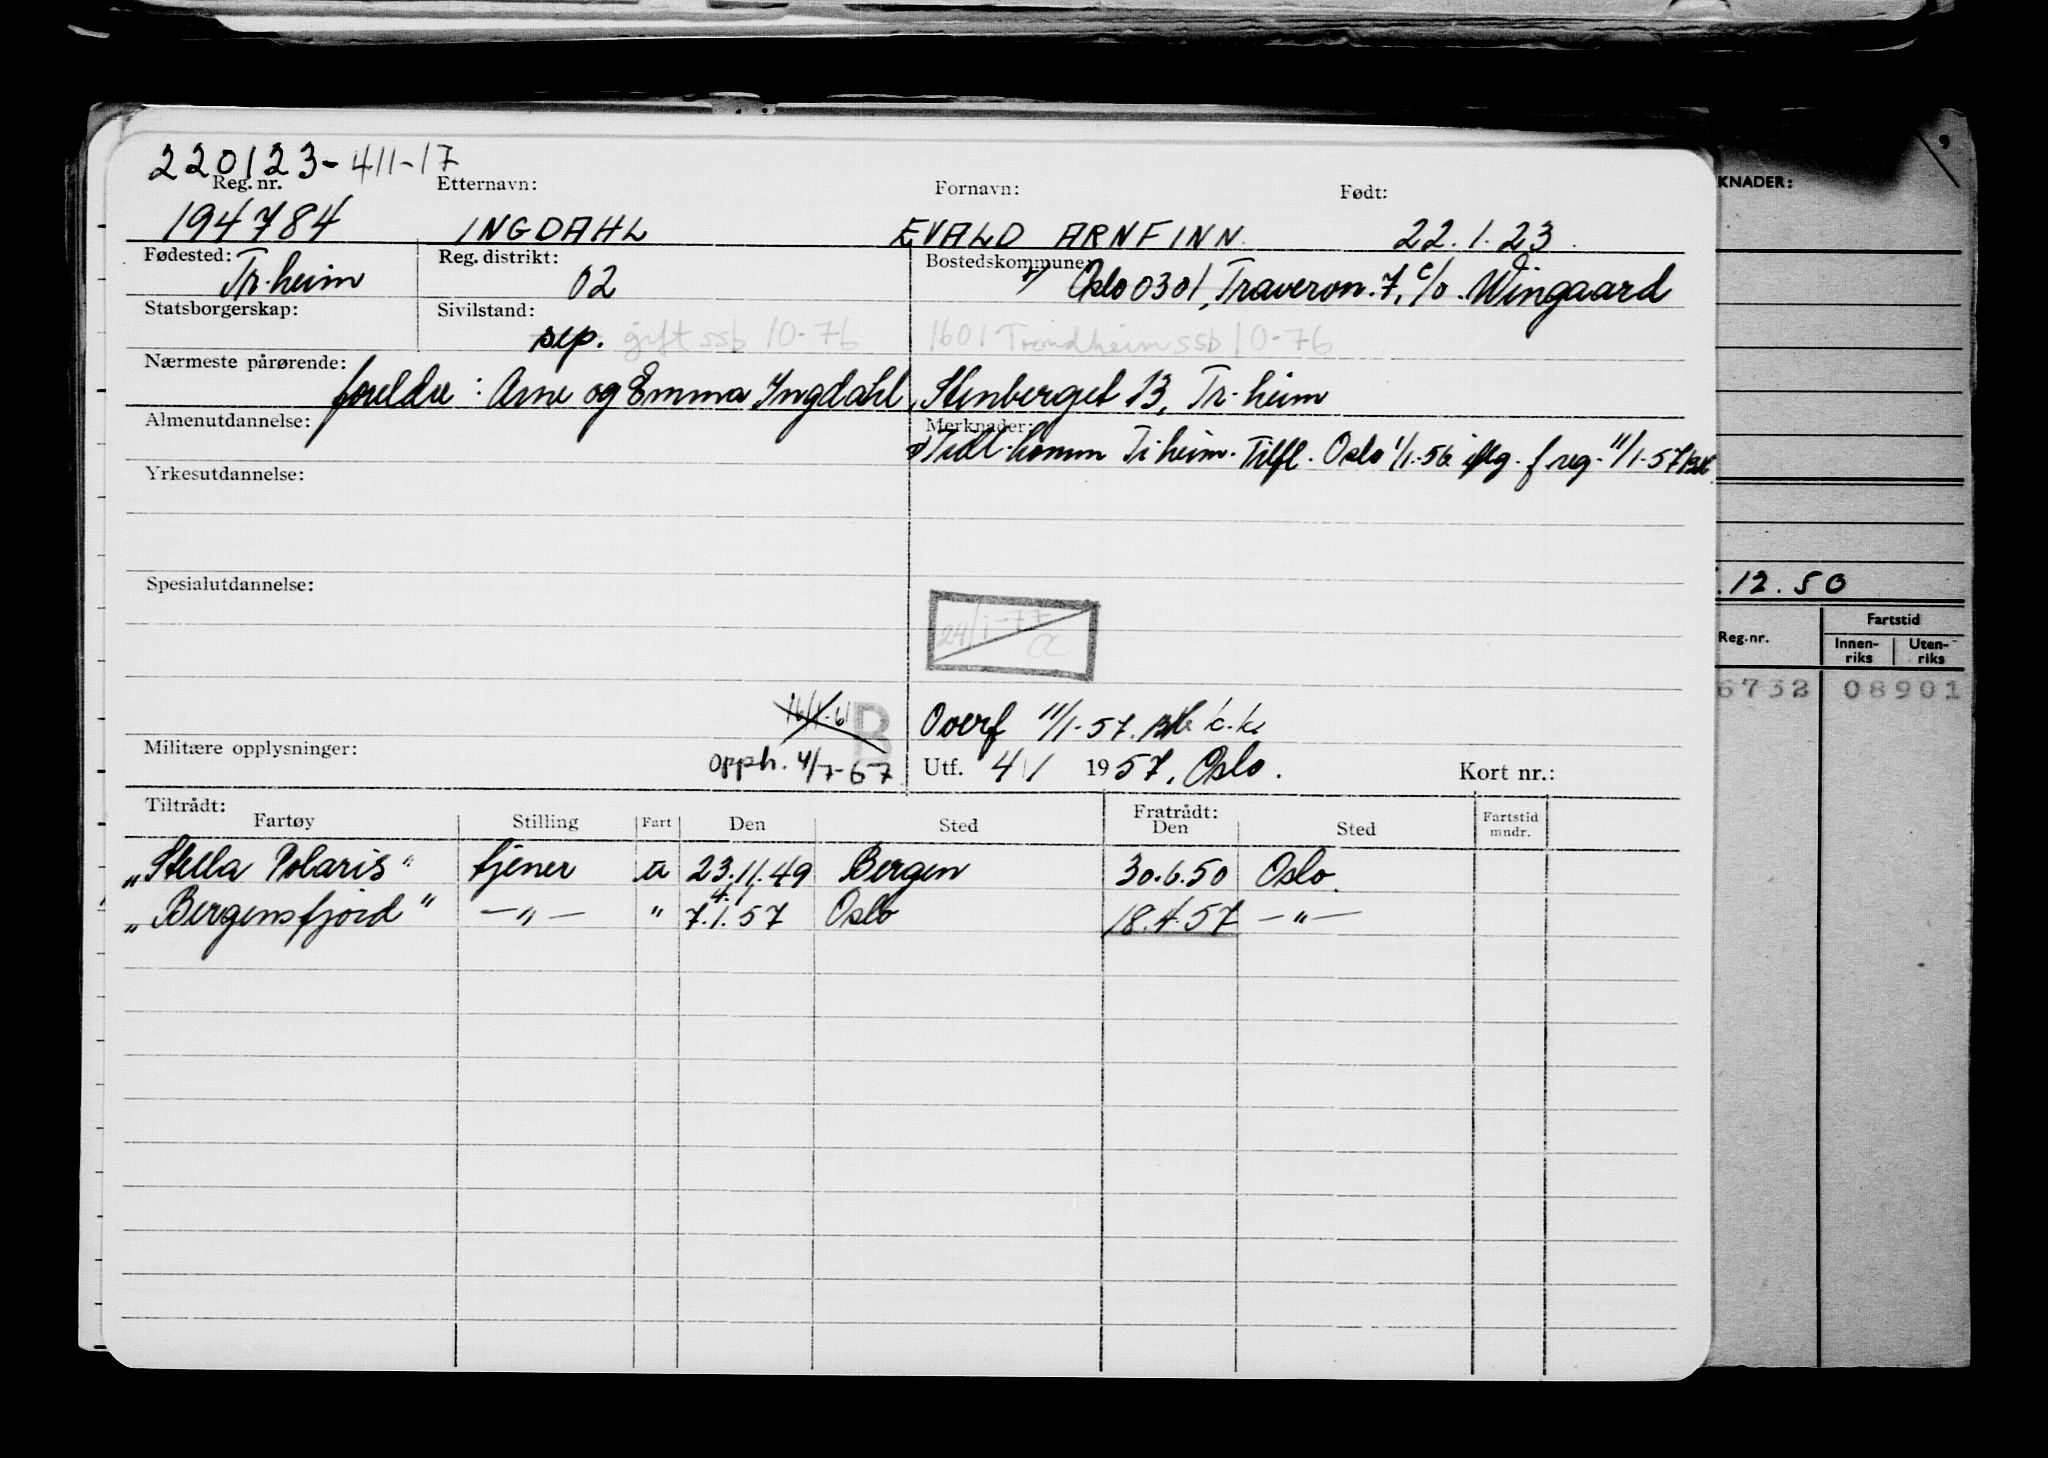 220123-411-17
Reg.nr. Etternavn: Fornavn: Født:
194784 INGDAHL EVALD ARNFINN 22.1.23.
Fødested: Reg. distrikt: Bostedskommune:
Tr.heim 02 Oslo 0301, Traveron. 7, c/o. Wingaard
Statsborgerskap: Sivilstand:
sep. gift ssb 10-76 1601 Trondheim ssb 10-76
Nærmeste pårørende:
foreldre: Arne og Emma Ingdahl, Stenberget 13, Tr.heim
Almenutdannelse: Merknader:
Tidl. komm Tr.heim. Tilfl. Oslo 1/1-56 iflg. f reg. 11/1-57
Yrkesutdannelse:
Spesialutdannelse:
24/1-77
16/1-61 B Overf 11/1-57. k.k.
Militære opplysninger: opph. 4/7-67 Utf. 4/1 1957, Oslo. Kort nr.:
Tiltrådt: Fratrådt:
Fartøy Stilling Fart Den Sted Den Sted Fartstid mndr.
„Stella Polaris" tjener u 23.11.49 Bergen 30.6.50 Oslo.
4/1
„Bergensfjord" —„— " 7.1.57 Oslo 18.4.57 —„—
KNADER:
.12.50
Reg.nr. Fartstid
Innen-riks Uten-riks
6732 08901